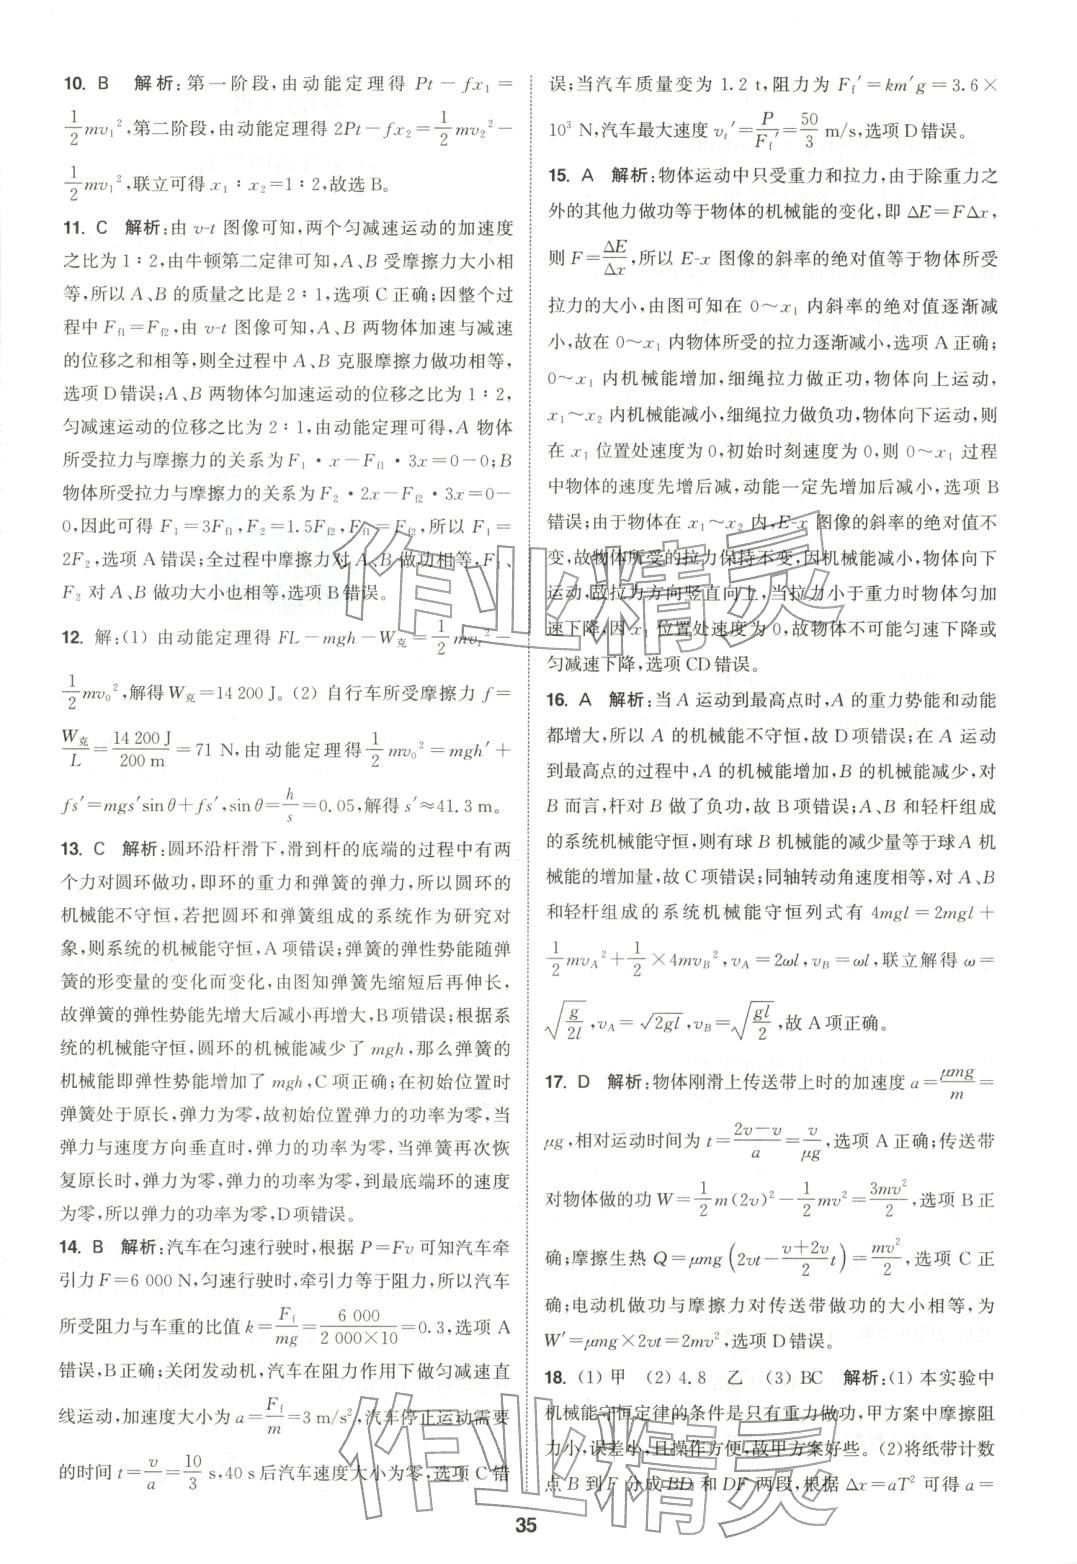 10. B　解析:第一阶段,由动能定理得 Pt－fx₁＝
1/2 mv₁²,第二阶段,由动能定理得 2Pt－fx₂＝1/2 mv₂²－
1/2 mv₁²,联立可得 x₁∶x₂＝1∶2,故选 B。
11. C　解析:由 v-t 图像可知,两个匀减速运动的加速度
之比为 1∶2,由牛顿第二定律可知,A、B 受摩擦力大小相
等,所以 A、B 的质量之比是 2∶1,选项 C 正确;因整个过
程中 F_f1＝F_f2,由 v-t 图像可知,A、B 两物体加速与减速
的位移之和相等,则全过程中 A、B 克服摩擦力做功相等,
选项 D 错误;A、B 两物体匀加速运动的位移之比为 1∶2,
匀减速运动的位移之比为 2∶1,由动能定理可得,A 物体
所受拉力与摩擦力的关系为 F₁·x－F_f1·3x＝0－0;B
物体所受拉力与摩擦力的关系为 F₂·2x－F_f2·3x＝0－
0,因此可得 F₁＝3F_f1,F₂＝1.5F_f2,F_f1＝F_f2,所以 F₁＝
2F₂,选项 A 错误;全过程中摩擦力对 A、B 做功相等,F₁、
F₂ 对 A、B 做功大小也相等,选项 B 错误。
12. 解:(1) 由动能定理得 FL－mgh－W克＝1/2 mv_t²－
1/2 mv₀²,解得 W克＝14 200 J。(2) 自行车所受摩擦力 f＝
W克/L＝14 200 J/200 m＝71 N,由动能定理得 1/2 mv₀²＝mgh′＋
fs′＝mgs′sin θ＋fs′,sin θ＝h/s＝0.05,解得 s′≈41.3 m。
13. C　解析:圆环沿杆滑下,滑到杆的底端的过程中有两
个力对圆环做功,即环的重力和弹簧的弹力,所以圆环的
机械能不守恒,若把圆环和弹簧组成的系统作为研究对
象,则系统的机械能守恒,A 项错误;弹簧的弹性势能随弹
簧的形变量的变化而变化,由图知弹簧先缩短后再伸长,
故弹簧的弹性势能先增大后减小再增大,B 项错误;根据系
统的机械能守恒,圆环的机械能减少了 mgh,那么弹簧的
机械能即弹性势能增加了 mgh,C 项正确;在初始位置时
弹簧处于原长,弹力为零,故初始位置弹力的功率为零,当
弹力与速度方向垂直时,弹力的功率为零,当弹簧再次恢
复原长时,弹力为零,弹力的功率为零,到最底端环的速度
为零,所以弹力的功率为零,D 项错误。
14. B　解析:汽车在匀速行驶时,根据 P＝Fv 可知汽车牵
引力 F＝6 000 N,匀速行驶时,牵引力等于阻力,所以汽车
所受阻力与车重的比值 k＝F_f/mg＝6 000/(2 000×10)＝0.3,选项 A
错误,B 正确;关闭发动机,汽车在阻力作用下做匀减速直
线运动,加速度大小为 a＝F_f/m＝3 m/s²,汽车停止运动需要
的时间 t＝v/a＝10/3 s,40 s 后汽车速度大小为零,选项 C 错
误;当汽车质量变为 1.2 t,阻力为 F_f′＝km′g＝3.6×
10³ N,汽车最大速度 v_t′＝P/F_f′＝50/3 m/s,选项 D 错误。
15. A　解析:物体运动中只受重力和拉力,由于除重力之
外的其他力做功等于物体的机械能的变化,即 ΔE＝FΔx,
则 F＝ΔE/Δx,所以 E-x 图像的斜率的绝对值等于物体所受
拉力的大小,由图可知在 0～x₁ 内斜率的绝对值逐渐减
小,故在 0～x₁ 内物体所受的拉力逐渐减小,选项 A 正确;
0～x₁ 内机械能增加,细绳拉力做正功,物体向上运动,
x₁～x₂ 内机械能减小,细绳拉力做负功,物体向下运动,则
在 x₁ 位置处速度为 0,初始时刻速度为 0,则 0～x₁ 过程
中物体的速度先增后减,动能一定先增加后减小,选项 B
错误;由于物体在 x₁～x₂ 内,E-x 图像的斜率的绝对值不
变,故物体所受的拉力保持不变,因机械能减小,物体向下
运动,故拉力方向竖直向上,当拉力小于重力时物体匀加
速下降,因 x₁ 位置处速度为 0,故物体不可能匀速下降或
匀减速下降,选项 CD 错误。
16. A　解析:当 A 运动到最高点时,A 的重力势能和动能
都增大,所以 A 的机械能不守恒,故 D 项错误;在 A 运动
到最高点的过程中,A 的机械能增加,B 的机械能减少,对
B 而言,杆对 B 做了负功,故 B 项错误;A、B 和轻杆组成
的系统机械能守恒,则有球 B 机械能的减少量等于球 A 机
械能的增加量,故 C 项错误;同轴转动角速度相等,对 A、B
和轻杆组成的系统机械能守恒列式有 4mgl＝2mgl＋
1/2 mv_A²＋1/2×4mv_B²,v_A＝2ωl,v_B＝ωl,联立解得 ω＝
√(g/2l),v_A＝√(2gl),v_B＝√(gl/2),故 A 项正确。
17. D　解析:物体刚滑上传送带上时的加速度 a＝μmg/m＝
μg,相对运动时间为 t＝(2v－v)/a＝v/μg,选项 A 正确;传送带
对物体做的功 W＝1/2 m(2v)²－1/2 mv²＝3mv²/2,选项 B 正
确;摩擦生热 Q＝μmg(2vt－(v＋2v)/2 t)＝mv²/2,选项 C 正
确;电动机做功与摩擦力对传送带做功的大小相等,为
W′＝μmg×2vt＝2mv²,选项 D 错误。
18. (1) 甲　(2) 4.8　乙　(3) BC　解析:(1) 本实验中
机械能守恒定律的条件是只有重力做功,甲方案中摩擦阻
力小,误差小,且操作方便,故甲方案好些。(2)将纸带计数
点 B 到 F 分成 BD 和 DF 两段,根据 Δx＝aT² 可得 a＝
35
作业精灵
作业精灵